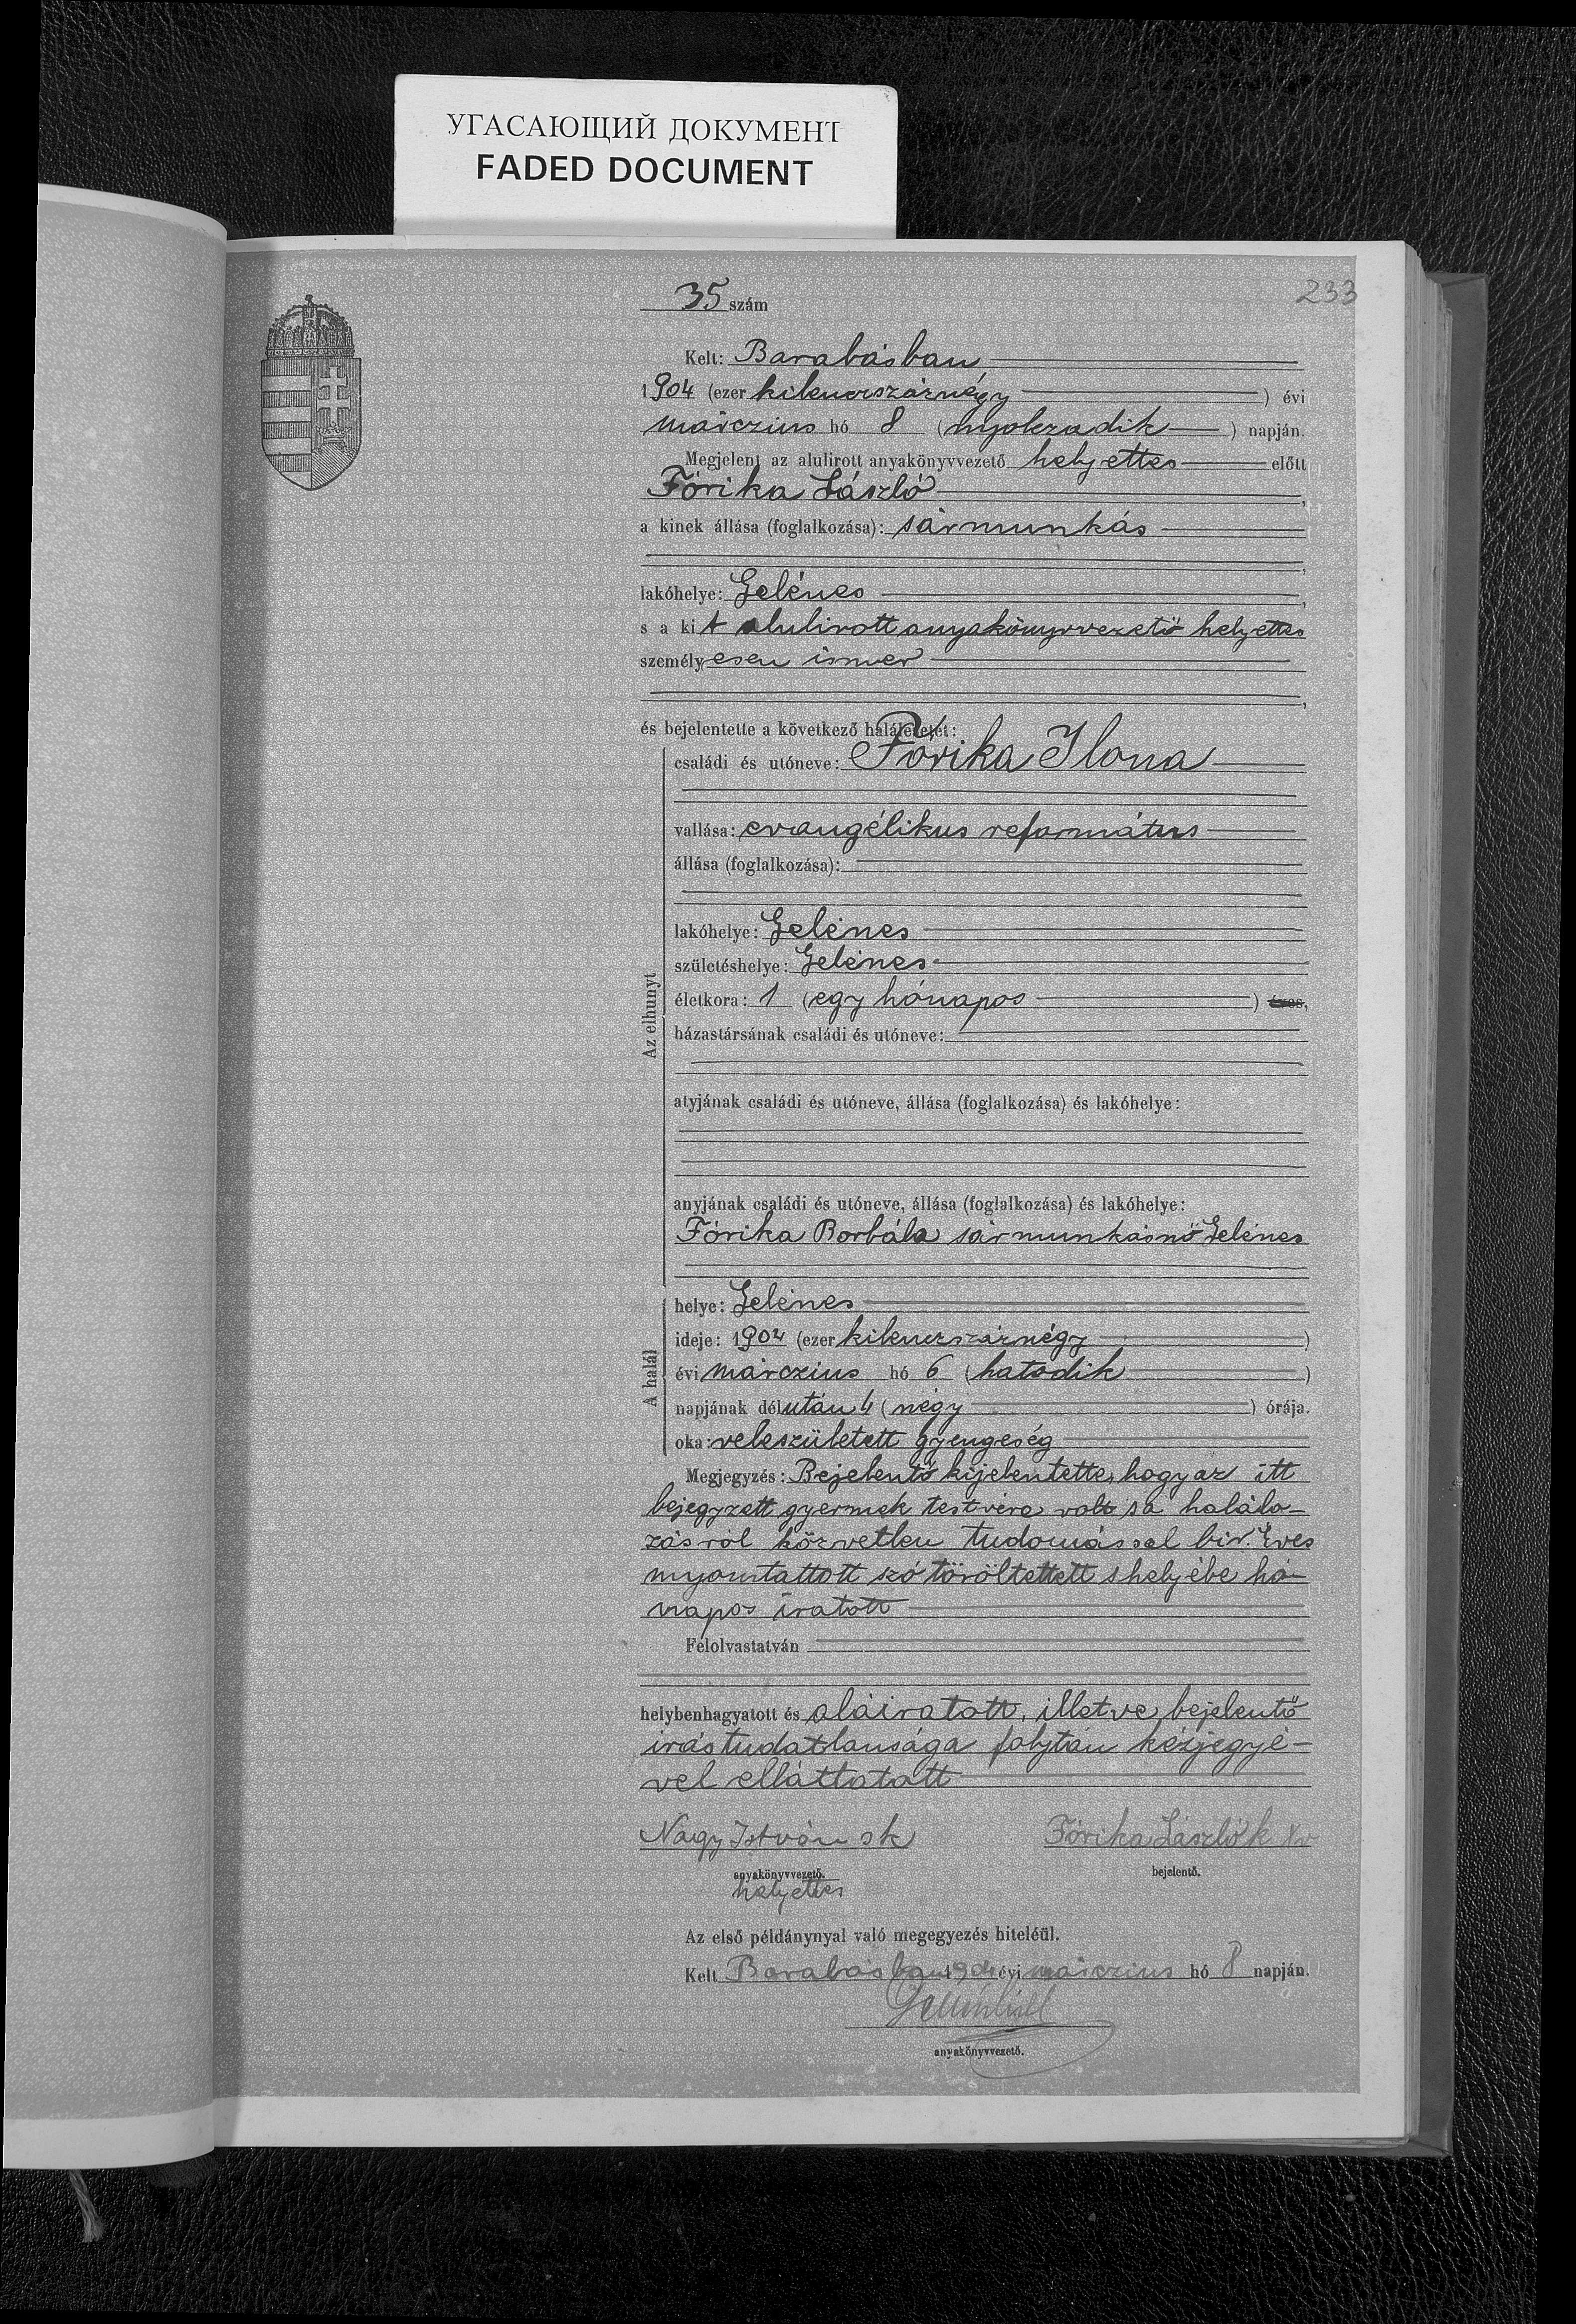 УГАСАЮЩИЙ ДОКУМЕНТ
FADED DOCUMENT
233
35 szám
Kelt: Barabásban
1904 (ezer kilenczszáznégy) évi
márczius hó 8 (nyolczadik) napján.
Megjelent az alulirott anyakönyvvezető helyettes előtt
Fórika László,
a kinek állása (foglalkozása): sármunkás
,
lakóhelye: Gelénes,
s a kit alulirott anyakönyvvezető helyettes
személyesen ismer
,
és bejelentette a következő halálesetet:
családi és utóneve: Fórika Ilona
vallása: evangélikus református
állása (foglalkozása):
lakóhelye: Gelénes
születéshelye: Gelénes
Az elhunyt
életkora: 1 (egy hónapos) éves,
házastársának családi és utóneve:
atyjának családi és utóneve, állása (foglalkozása) és lakóhelye:
anyjának családi és utóneve, állása (foglalkozása) és lakóhelye:
Fórika Borbála sármunkásnő Gelénes
helye: Gelénes
ideje: 1904 (ezer kilenczszáznégy)
A halál
évi márczius hó 6 (hatodik)
napjának délután 4 (négy) órája.
oka: veleszületett gyengeség
Megjegyzés: Bejelentő kijelentette, hogy az itt
bejegyzett gyermek testvére volt s a halálo-
zásról közvetlen tudomással bir. Éves
nyomtattott szó töröltettett s helyébe hó-
napos iratott
Felolvastatván
helybenhagyatott és aláiratott, illetve bejelentő
irástudatlansága folytán kézjegyé-
vel elláttatott
Nagy István sk
Fórika László k
anyakönyvvezető.
bejelentő.
helyettes
Az első példánynyal való megegyezés hiteléül.
Kelt Barabásban 1904 évi márczius hó 8 napján.
anyakönyvvezető.